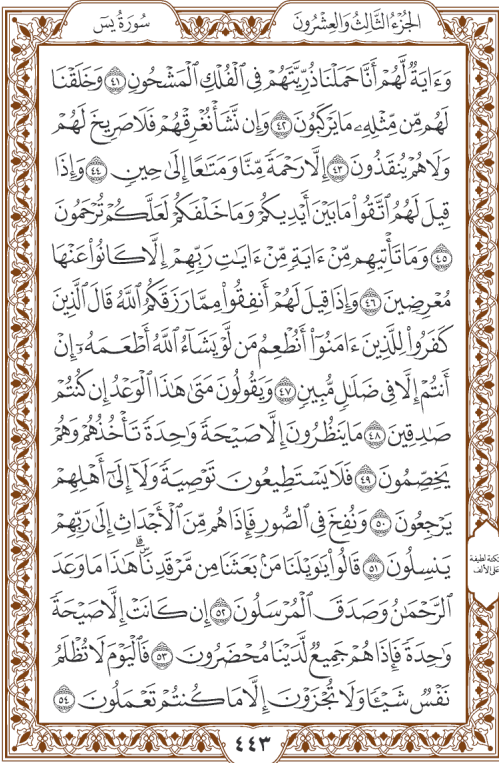 الجُزْءُ الثَّالِثُ وَالعِشْرُونَ
سُورَةُ يسٓ
وَءَايَةٌ لَّهُمْ أَنَّا حَمَلْنَا ذُرِّيَّتَهُمْ فِى ٱلْفُلْكِ ٱلْمَشْحُونِ ٤١ وَخَلَقْنَا
لَهُم مِّن مِّثْلِهِۦ مَا يَرْكَبُونَ ٤٢ وَإِن نَّشَأْ نُغْرِقْهُمْ فَلَا صَرِيخَ لَهُمْ
وَلَا هُمْ يُنقَذُونَ ٤٣ إِلَّا رَحْمَةً مِّنَّا وَمَتَٰعًا إِلَىٰ حِينٍ ٤٤ وَإِذَا
قِيلَ لَهُمُ ٱتَّقُوا۟ مَا بَيْنَ أَيْدِيكُمْ وَمَا خَلْفَكُمْ لَعَلَّكُمْ تُرْحَمُونَ
٤٥ وَمَا تَأْتِيهِم مِّنْ ءَايَةٍ مِّنْ ءَايَٰتِ رَبِّهِمْ إِلَّا كَانُوا۟ عَنْهَا
مُعْرِضِينَ ٤٦ وَإِذَا قِيلَ لَهُمْ أَنفِقُوا۟ مِمَّا رَزَقَكُمُ ٱللَّهُ قَالَ ٱلَّذِينَ
كَفَرُوا۟ لِلَّذِينَ ءَامَنُوٓا۟ أَنُطْعِمُ مَن لَّوْ يَشَآءُ ٱللَّهُ أَطْعَمَهُۥٓ إِنْ
أَنتُمْ إِلَّا فِى ضَلَٰلٍ مُّبِينٍ ٤٧ وَيَقُولُونَ مَتَىٰ هَٰذَا ٱلْوَعْدُ إِن كُنتُمْ
صَٰدِقِينَ ٤٨ مَا يَنظُرُونَ إِلَّا صَيْحَةً وَٰحِدَةً تَأْخُذُهُمْ وَهُمْ
يَخِصِّمُونَ ٤٩ فَلَا يَسْتَطِيعُونَ تَوْصِيَةً وَلَآ إِلَىٰٓ أَهْلِهِمْ
يَرْجِعُونَ ٥٠ وَنُفِخَ فِى ٱلصُّورِ فَإِذَا هُم مِّنَ ٱلْأَجْدَاثِ إِلَىٰ رَبِّهِمْ
يَنسِلُونَ ٥١ قَالُوا۟ يَٰوَيْلَنَا مَنۢ بَعَثَنَا مِن مَّرْقَدِنَا ۜ ۗ هَٰذَا مَا وَعَدَ
ٱلرَّحْمَٰنُ وَصَدَقَ ٱلْمُرْسَلُونَ ٥٢ إِن كَانَتْ إِلَّا صَيْحَةً
وَٰحِدَةً فَإِذَا هُمْ جَمِيعٌ لَّدَيْنَا مُحْضَرُونَ ٥٣ فَٱلْيَوْمَ لَا تُظْلَمُ
نَفْسٌ شَيْـًٔا وَلَا تُجْزَوْنَ إِلَّا مَا كُنتُمْ تَعْمَلُونَ ٥٤
سكتة لطيفة
على الألف
٤٤٣